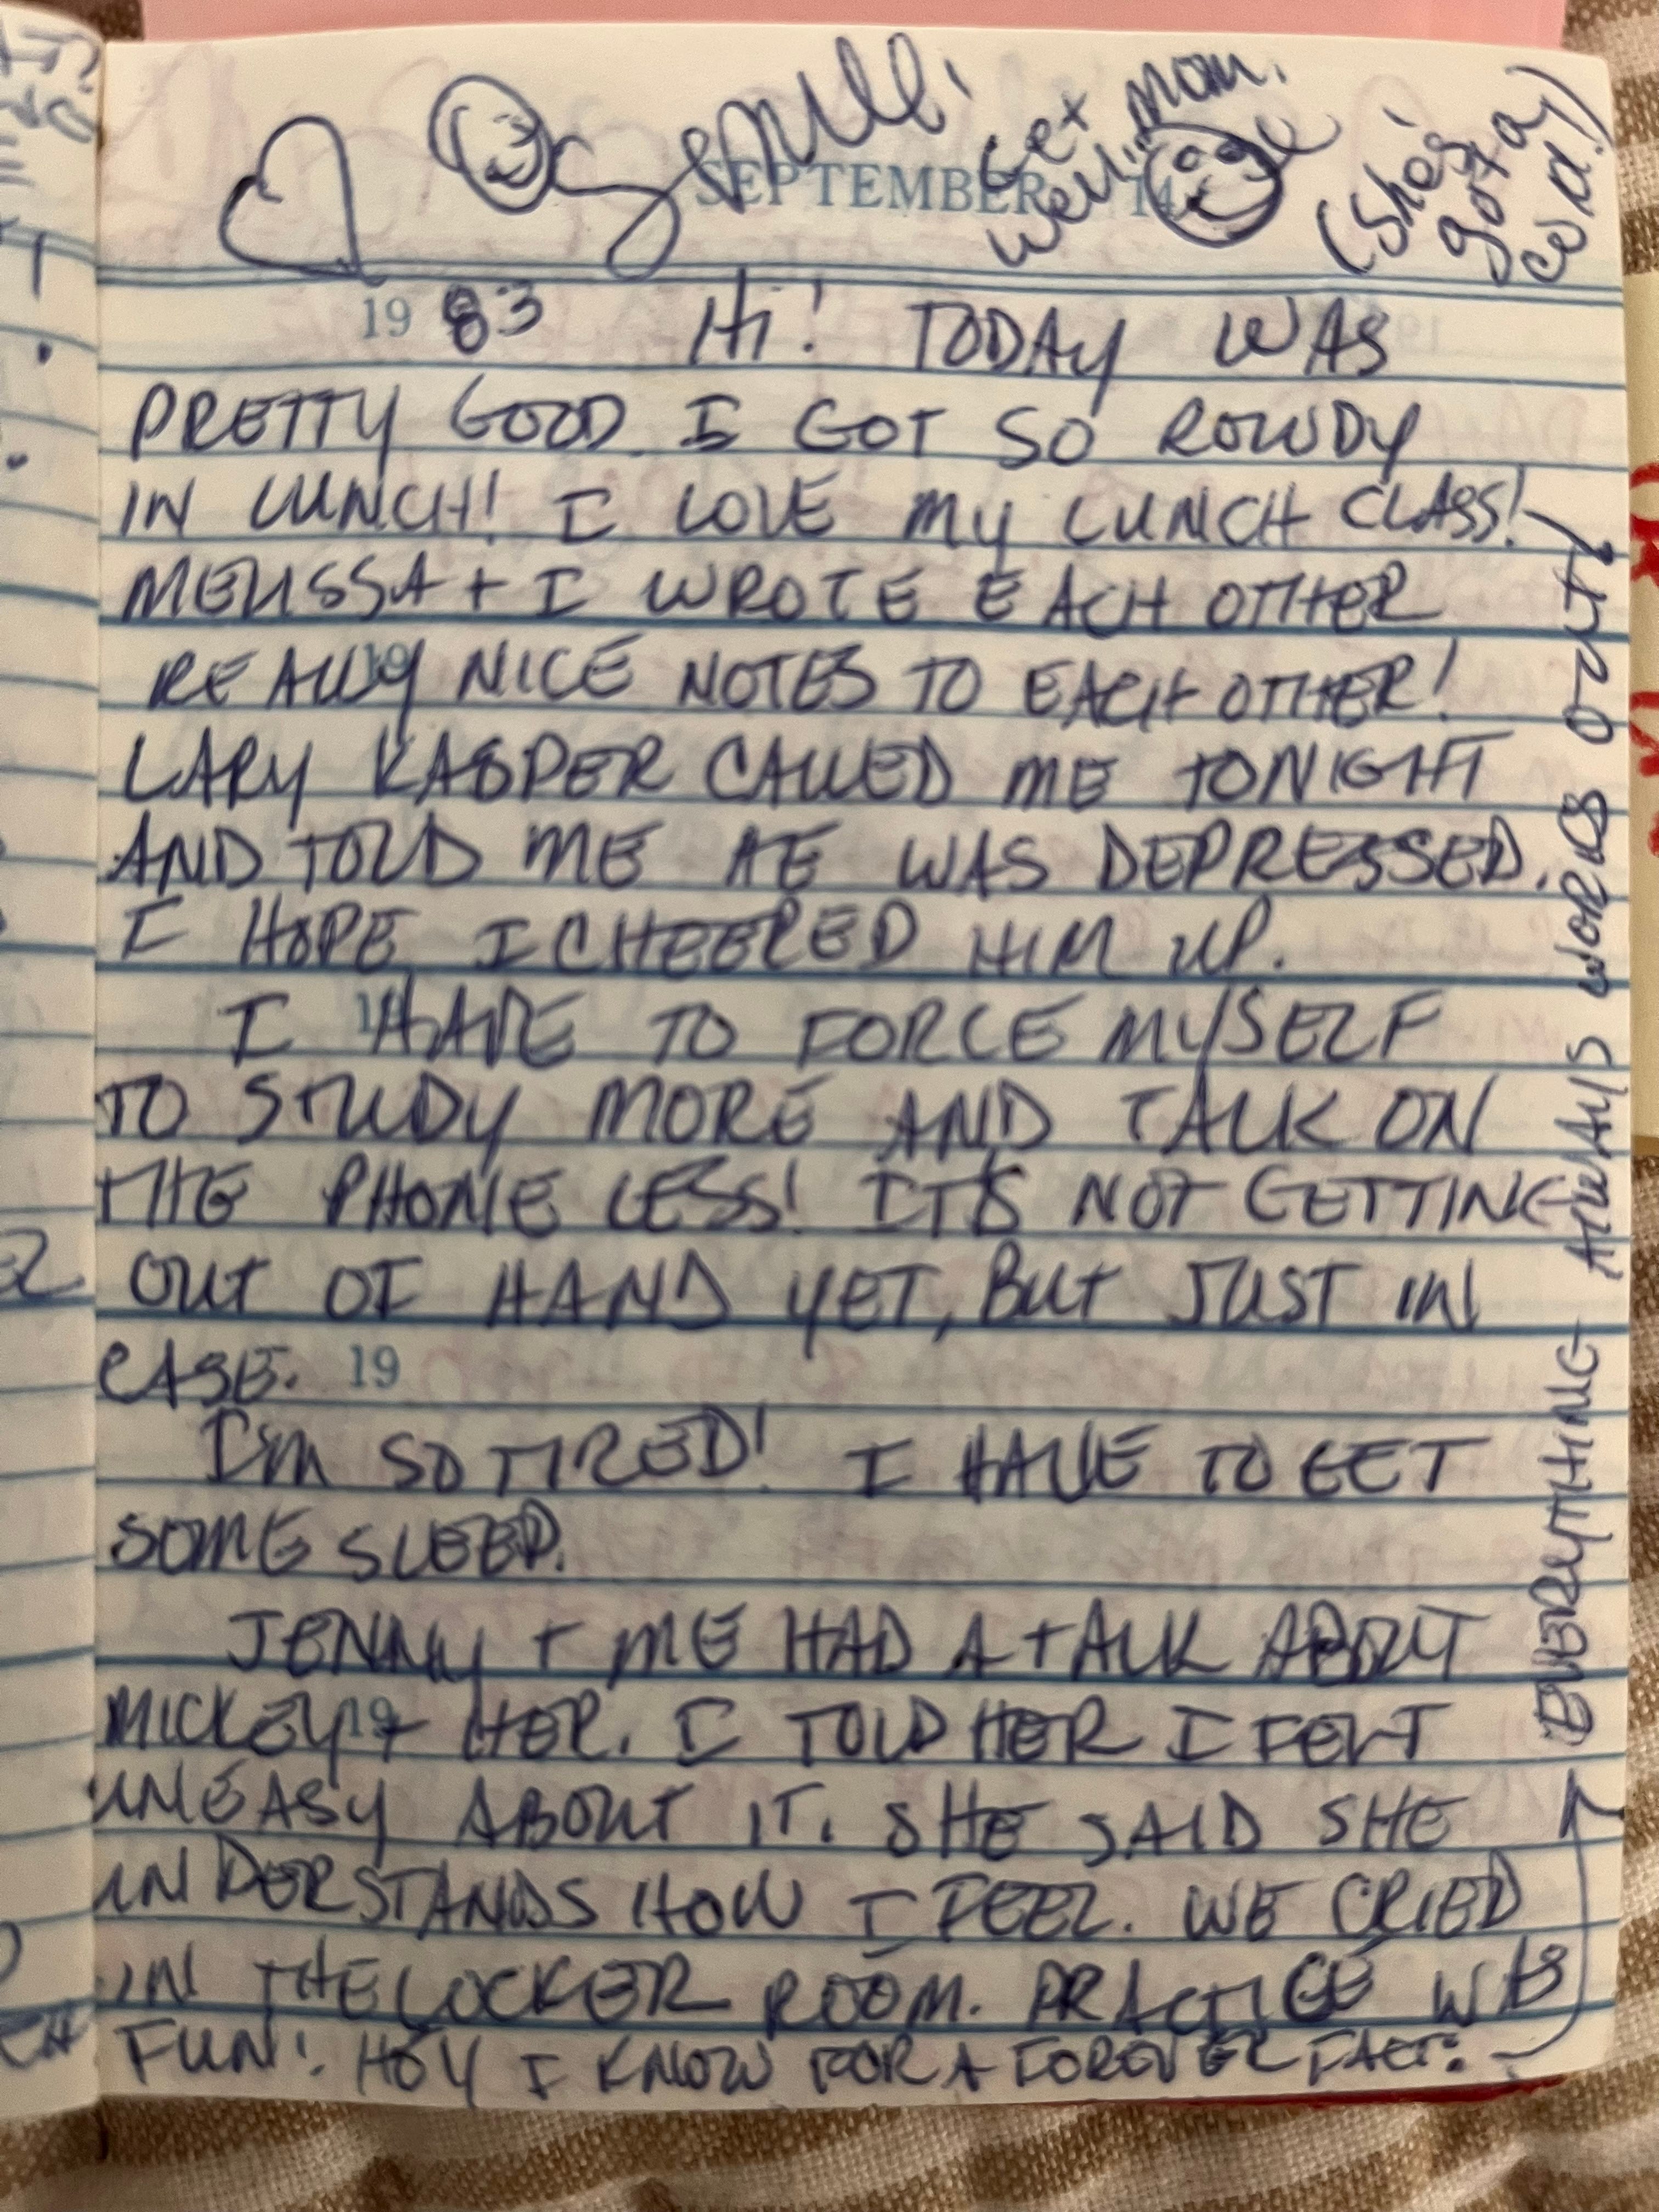 Smile!
Get
well, mom.
(She's
got a
cold!)
SEPTEMBER 14
1983 Hi! TODAY WAS
PRETTY GOOD. I GOT SO ROWDY
IN LUNCH! I LOVE MY LUNCH CLASS!
MELISSA + I WROTE EACH OTHER
REALLY NICE NOTES TO EACH OTHER!
19
LARY KASPER CALLED ME TONIGHT
AND TOLD ME HE WAS DEPRESSED.
I HOPE I CHEERED HIM UP.
I HAVE TO FORCE MYSELF
19
TO STUDY MORE AND TALK ON
THE PHONE LESS! IT'S NOT GETTING
OUT OF HAND YET, BUT JUST IN
CASE. 19
I'M SO TIRED! I HAVE TO GET
SOME SLEEP.
JENNY + ME HAD A TALK ABOUT
MICKEY + HER. I TOLD HER I FELT
19
UNEASY ABOUT IT. SHE SAID SHE
UNDERSTANDS HOW I FEEL. WE CRIED
IN THE LOCKER ROOM. PRACTICE WAS
FUN! HEY I KNOW FOR A FOREVER FACT:
EVERYTHING ALWAYS WORKS OUT!